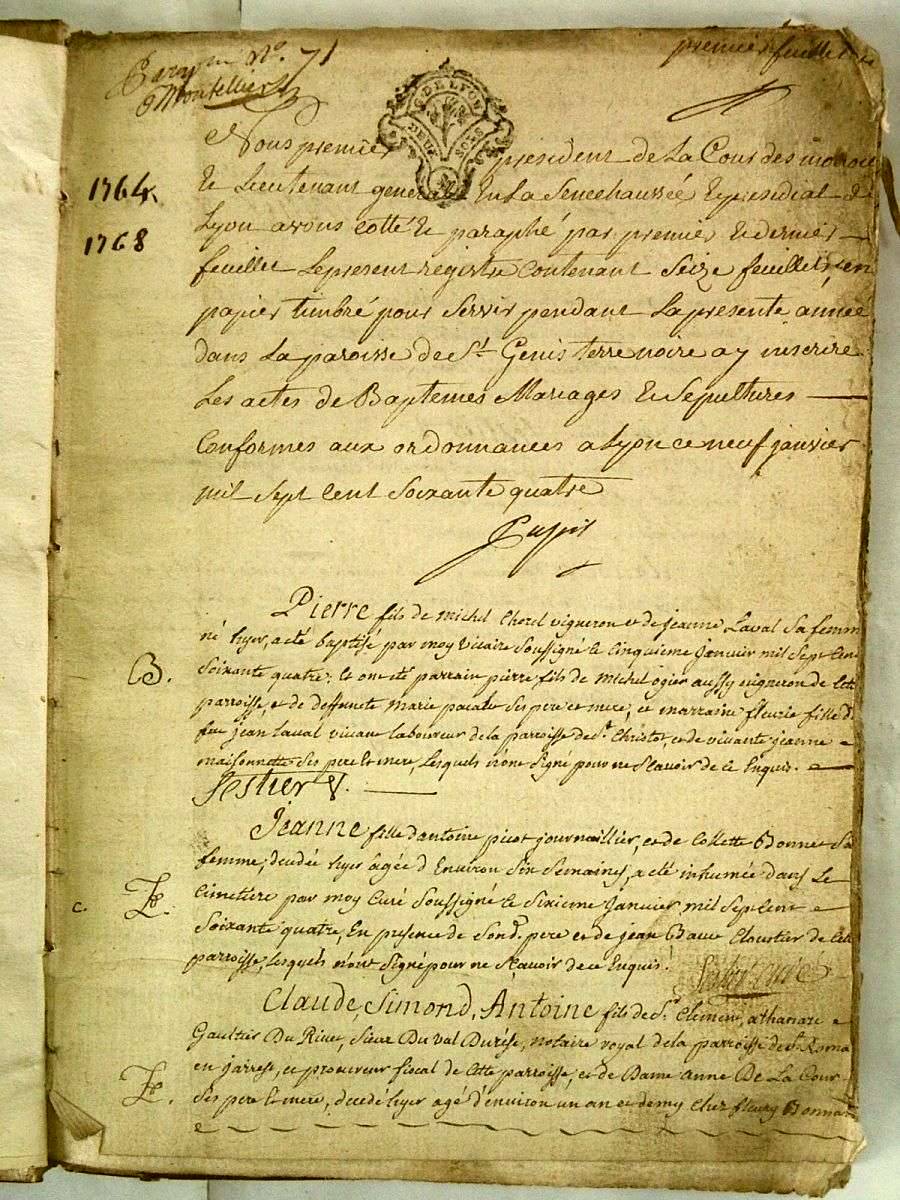 premier feuillet
No. 71
1764
1768
G. DE LYON
DEUX SOLS
Nous premier president de La Cour des monoie
et Lieutenant general En La Senechaussée et presidial de
Lyon avons cotté et paraphé par premier et dernier
feuillet Le present registre Contenant Seize feuillets en
papier timbré pour Servir pendant La presente année
dans La paroisse de St Genis terre noire a y inscrire
Les actes de Baptemes Mariages et Sepultures
Conformes aux ordonnances a Lyon ce neuf janvier
mil Sept Cent Soixante quatre
Pierre fils de michel Chorel vigneron et de jeanne Laval Sa femm
né hyer, a été baptisé par moy Vicaire Soussigné le Cinquieme Janvier mil Sept Cen
B.
Soixante quatre; et ont été parrain pierre fils de michel ogier aussy vigneron de cette
parroisse, et de deffunete marie Ses pere et mere; et marraine fleurie fille d
feu jean Laval vivant laboureur de la paroisse de St Christot, et de vivante jeanne
maisonnette Ses pere et mere, Lesquels n'ont Signé pour ne Scavoir de ce Enquis.
Testier V.
Jeanne fille d'antoine picot journaillier, et de Collette Bonnet Sa
femme, decedée hyer âgée d'Environ Six Semaines, a été inhumée dans Le
c.
Cimetiere par moy Curé Soussigné le Sixieme Janvier mil Sept Cent
Soixante quatre, En presence de Sond. pere et de jean Cloutier de Cette
parroisse, Lesquels n'ont Signé pour ne Scavoir de ce Enquis.
curé
Claude, Simond, Antoine fils de Sr. Clement, athanaze
Gaultier Du Sieur Du val notaire royal de la parroisse de St. Roma
en jarrest, et procureur fiscal de Cette parroisse, et de Dame anne De La Cour
Ses pere et mere, decedé hyer agé d'environ un an et demy Chez fleury Bonnar